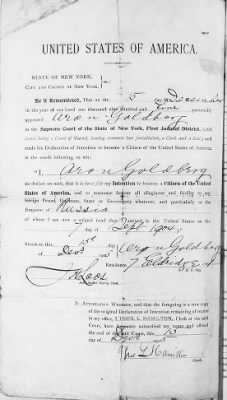 UNITED STATES OF AMERICA.
STATE OF NEW YORK,
CITY AND COUNTY OF NEW YORK, ss.:
Be it Remembered, That on the 15 day of December
in the year of our Lord one thousand nine hundred and five personally
appeared Aron Goldberg
in the Supreme Court of the State of New York, First Judicial District, (said
Court being a Court of Record, having common law jurisdiction, a Clerk and a Seal) and
made his Declaration of Intention to become a Citizen of the United States of America
in the words following, to wit:
I, Aron Goldberg
do declare on oath, that it is bona fide my Intention to become a Citizen of the United
States of America, and to renounce forever all allegiance and fidelity to any
foreign Prince, Potentate, State or Sovereignty whatever, and particularly to the
Emperor of Russia
of whom I am now a subject (and that I arrived in the United States on the
7 day of Sept 1904
Sworn to this 15th
day of Dec 190
Aron Goldberg
Residence, 7 Eldridge St
N. Y. City
Clerk
IN ATTESTATION WHEREOF, and that the foregoing is a true copy
of the original Declaration of Intention remaining of record
in my office, I THOS. L. HAMILTON, Clerk of the said
Court, have hereunto subscribed my name and affixed
the seal of the said Court, this 15
day of Dec 190
Thos L Hamilton
Clerk.